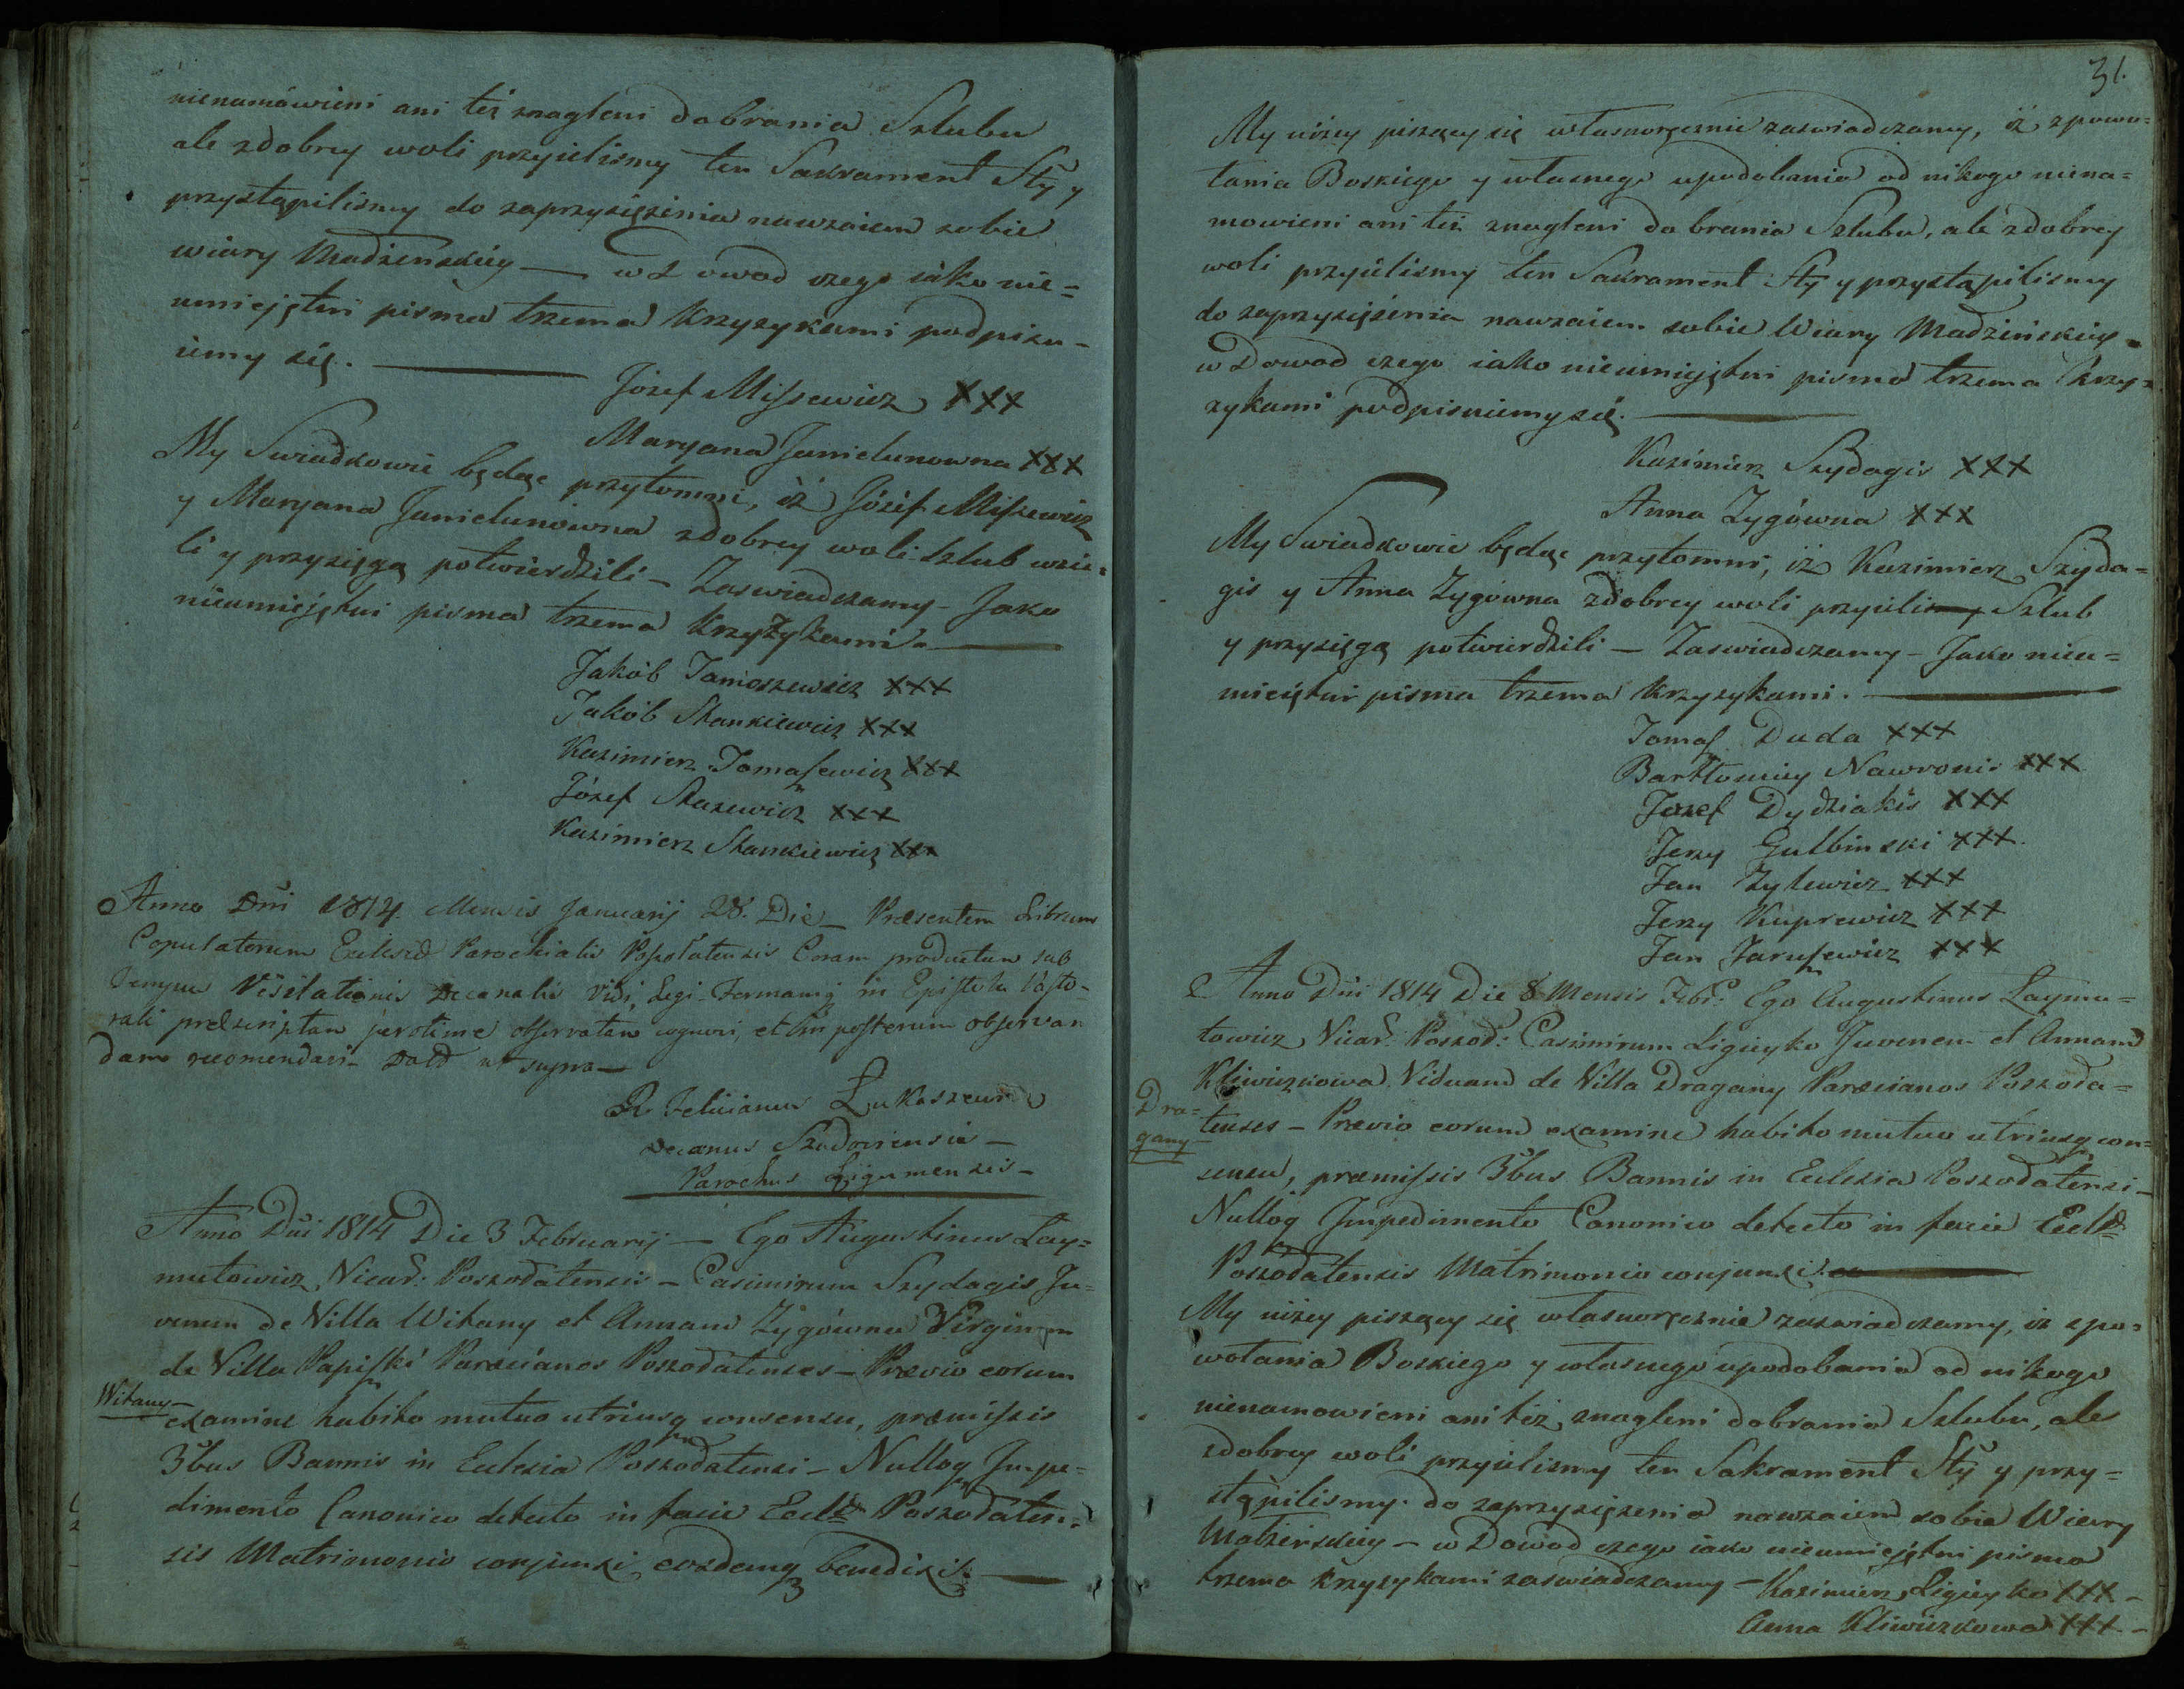 nienamówieni ani też znagleni dobrania Szlubu
ale zdobrey woli przyieliśmy ten Sakrament Sty y
przystąpiliśmy do zaprzysiężenia nawzaiem sobie
wiary Madżenskiey — w Dowod czego iako nie=
umieiętni pisma trzema krzyzykami podpisu-
iemy się. —
Józef Missewicz XXX
Maryana Janielunowna XXX
My Swiadkowie będąc przytomni, iż Józef Missewicz
y Maryana Janielunowna zdobrey woli szlub wzie=
li y przysięgą potwierdzili — Zaswiadczamy — Jako
nieumieiętni pisma trzema krzyżykami. —
Jakób Janioszewicz XXX
Jakób Stankiewicz XXX
Kazimierz Tomaszewicz XXX
Józef Staszewicz XXX
Kazimierz Stankiewicz XXX
Anno Dni 1814 Mensis Januarij 28. Die — Præsentem Librum
Copulatorum Ecclesiæ Parochialis Coram productum sub
Tempus Visitationis Decanalis Vidi, Legi — Formamq in Epistola Pasto-
rali præscriptam observatam cognovi, et in posterum observan
dam recomendavi — ut supra —
R Felicianus Łukaszewicz
Decanus Szadoviensis —
Parochus Ligumensis —
Anno Dni 1814 Die 3 Februarij — Ego Augustinus Lay=
mutowicz Vicar: Poszodatensis — Casimirum Szydagis Ju=
venem de Villa Witany et Annam Zygówna Virginem
de Villa Papiszki Paræcianos Poszodatenses — Prævio eorum
Witany —
examine habito mutuo utriusq consensu, præmissis
3bus Bannis in Eclesia Poszodatensi — Nulloq Impe-
dimento Canonico detecto in facie Ecclæ Poszodaten=
sis Matrimonio conjunxi, eosdemq benedixi. —
31.
My niżey piszący się własnoręcznie zaswiadczamy, iż zpowo=
łania Boskiego y własnego upodobania od nikogo niena=
mowieni ani też znagleni do brania Szlubu, ale zdobrey
woli przyieliśmy ten Sakrament Sty y przystąpilismy
do zaprzysiężenia nawzaiem sobie Wiary Madżeńskiey —
w Dowod czego iako nieumieiętni pisma trzema krzy=
zykami podpisuiemy się. —
Kazimierz Szydagis XXX
Anna Zygówna XXX
My Swiadkowie będąc przytomni, iż Kazimierz Szyda=
gis y Anna Zygówna zdobrey woli przyieli Szlub
y przysięgą potwierdzili — Zaswiadczamy — Jako nieu=
mieiętni pisma trzema krzyzykami. —
Tomasz Duda XXX
Bartłomiey Nawronis XXX
Jozef Dydziakis XXX
Jerzy Gulbinski XXX.
Jan Zylewicz XXX
Jerzy Kuprewicz XXX
Jan Jaruszewicz XXX
Anno Dni 1814 Die 8 Mensis Febr: Ego Augustinus Laymu=
towicz Vicar: Poszod: Casimirum Ligieyko Juvenem et Annam
Kliwiczkowa Viduam de Villa Dragany Paræcianos Poszoda=
Dra=
gany —
tenses — Prævio eorum examine habito mutuo utriusq con=
sensu, præmissis 3bus Bannis in Eclesia Poszodatensi —
Nulloq Impedimento Canonico detecto in facie Ecclæ
Poszodatensis Matrimonio conjunxi. —
My niżey piszący się własnoręcznie zaswiadczamy, iż zpo=
wołania Boskiego y własnego upodobania od nikogo
nienamowieni ani też znagleni dobrania Szlubu, ale
zdobrey woli przyielismy ten Sakrament Sty y przy=
stąpilismy do zaprzysiężenia nawzaiem sobie Wiary
Madżenskiey — w Dowod czego iako nieumieiętni pisma
trzema krzyzykami zaswiadczamy — Kazimierz Ligieyko XXX —
Anna Kliwiczkowa XXX —